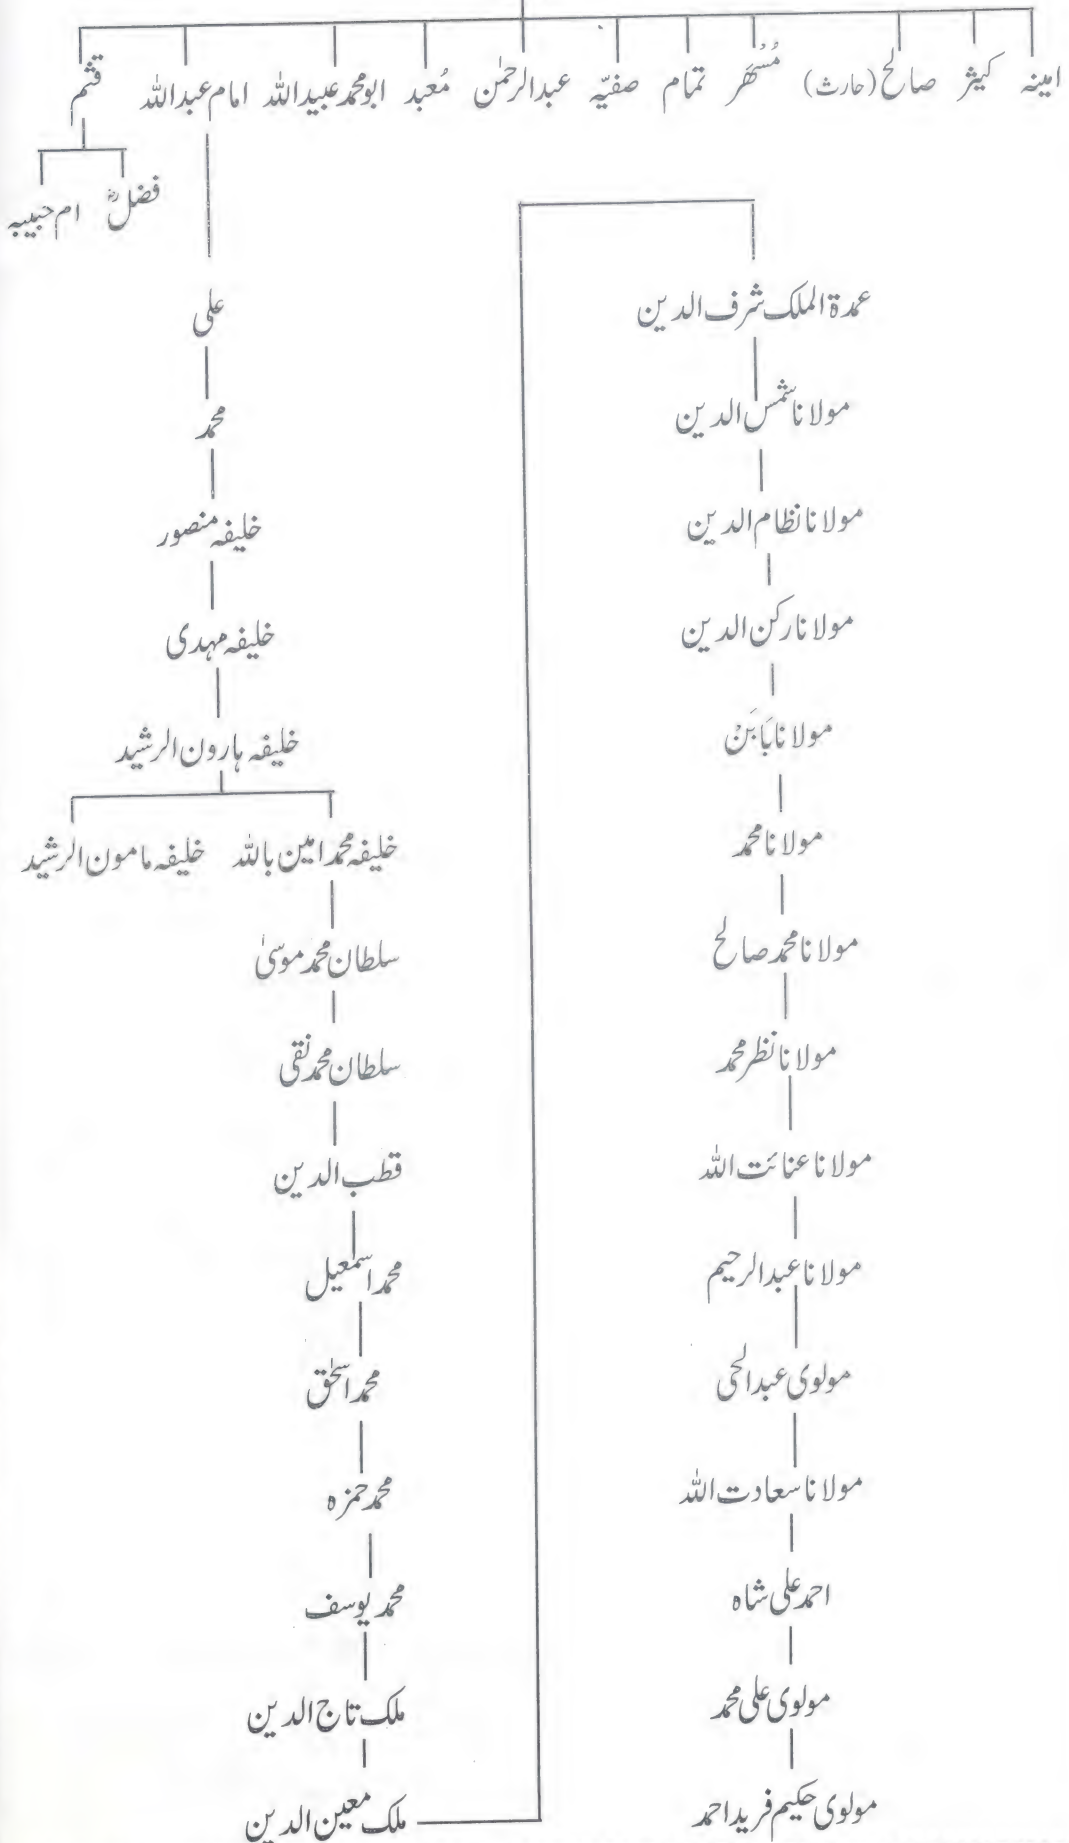 امینہ کیثر صالح (حارث) مُسْہَر تمام صفیّہ عبدالرحمٰن مُعبد ابومحمد عبیداللہ امام عبداللہ قثم
فضلؓ ام حبیبہ
علی
محمد
خلیفہ منصور
خلیفہ مہدی
خلیفہ ہارون الرشید
خلیفہ محمد امین باللہ خلیفہ مامون الرشید
سلطان محمد موسیٰ
سلطان محمد نقی
قطب الدین
محمد اسمٰعیل
محمد اسحٰق
محمد حمزہ
محمد یوسف
ملک تاج الدین
ملک معین الدین
عمدۃ الملک شرف الدین
مولانا شمس الدین
مولانا نظام الدین
مولانا رکن الدین
مولانا بَابَنْ
مولانا محمد
مولانا محمد صالح
مولانا نظر محمد
مولانا عنائت اللہ
مولانا عبدالرحیم
مولوی عبدالحی
مولانا سعادت اللہ
احمد علی شاہ
مولوی علی محمد
مولوی حکیم فرید احمد